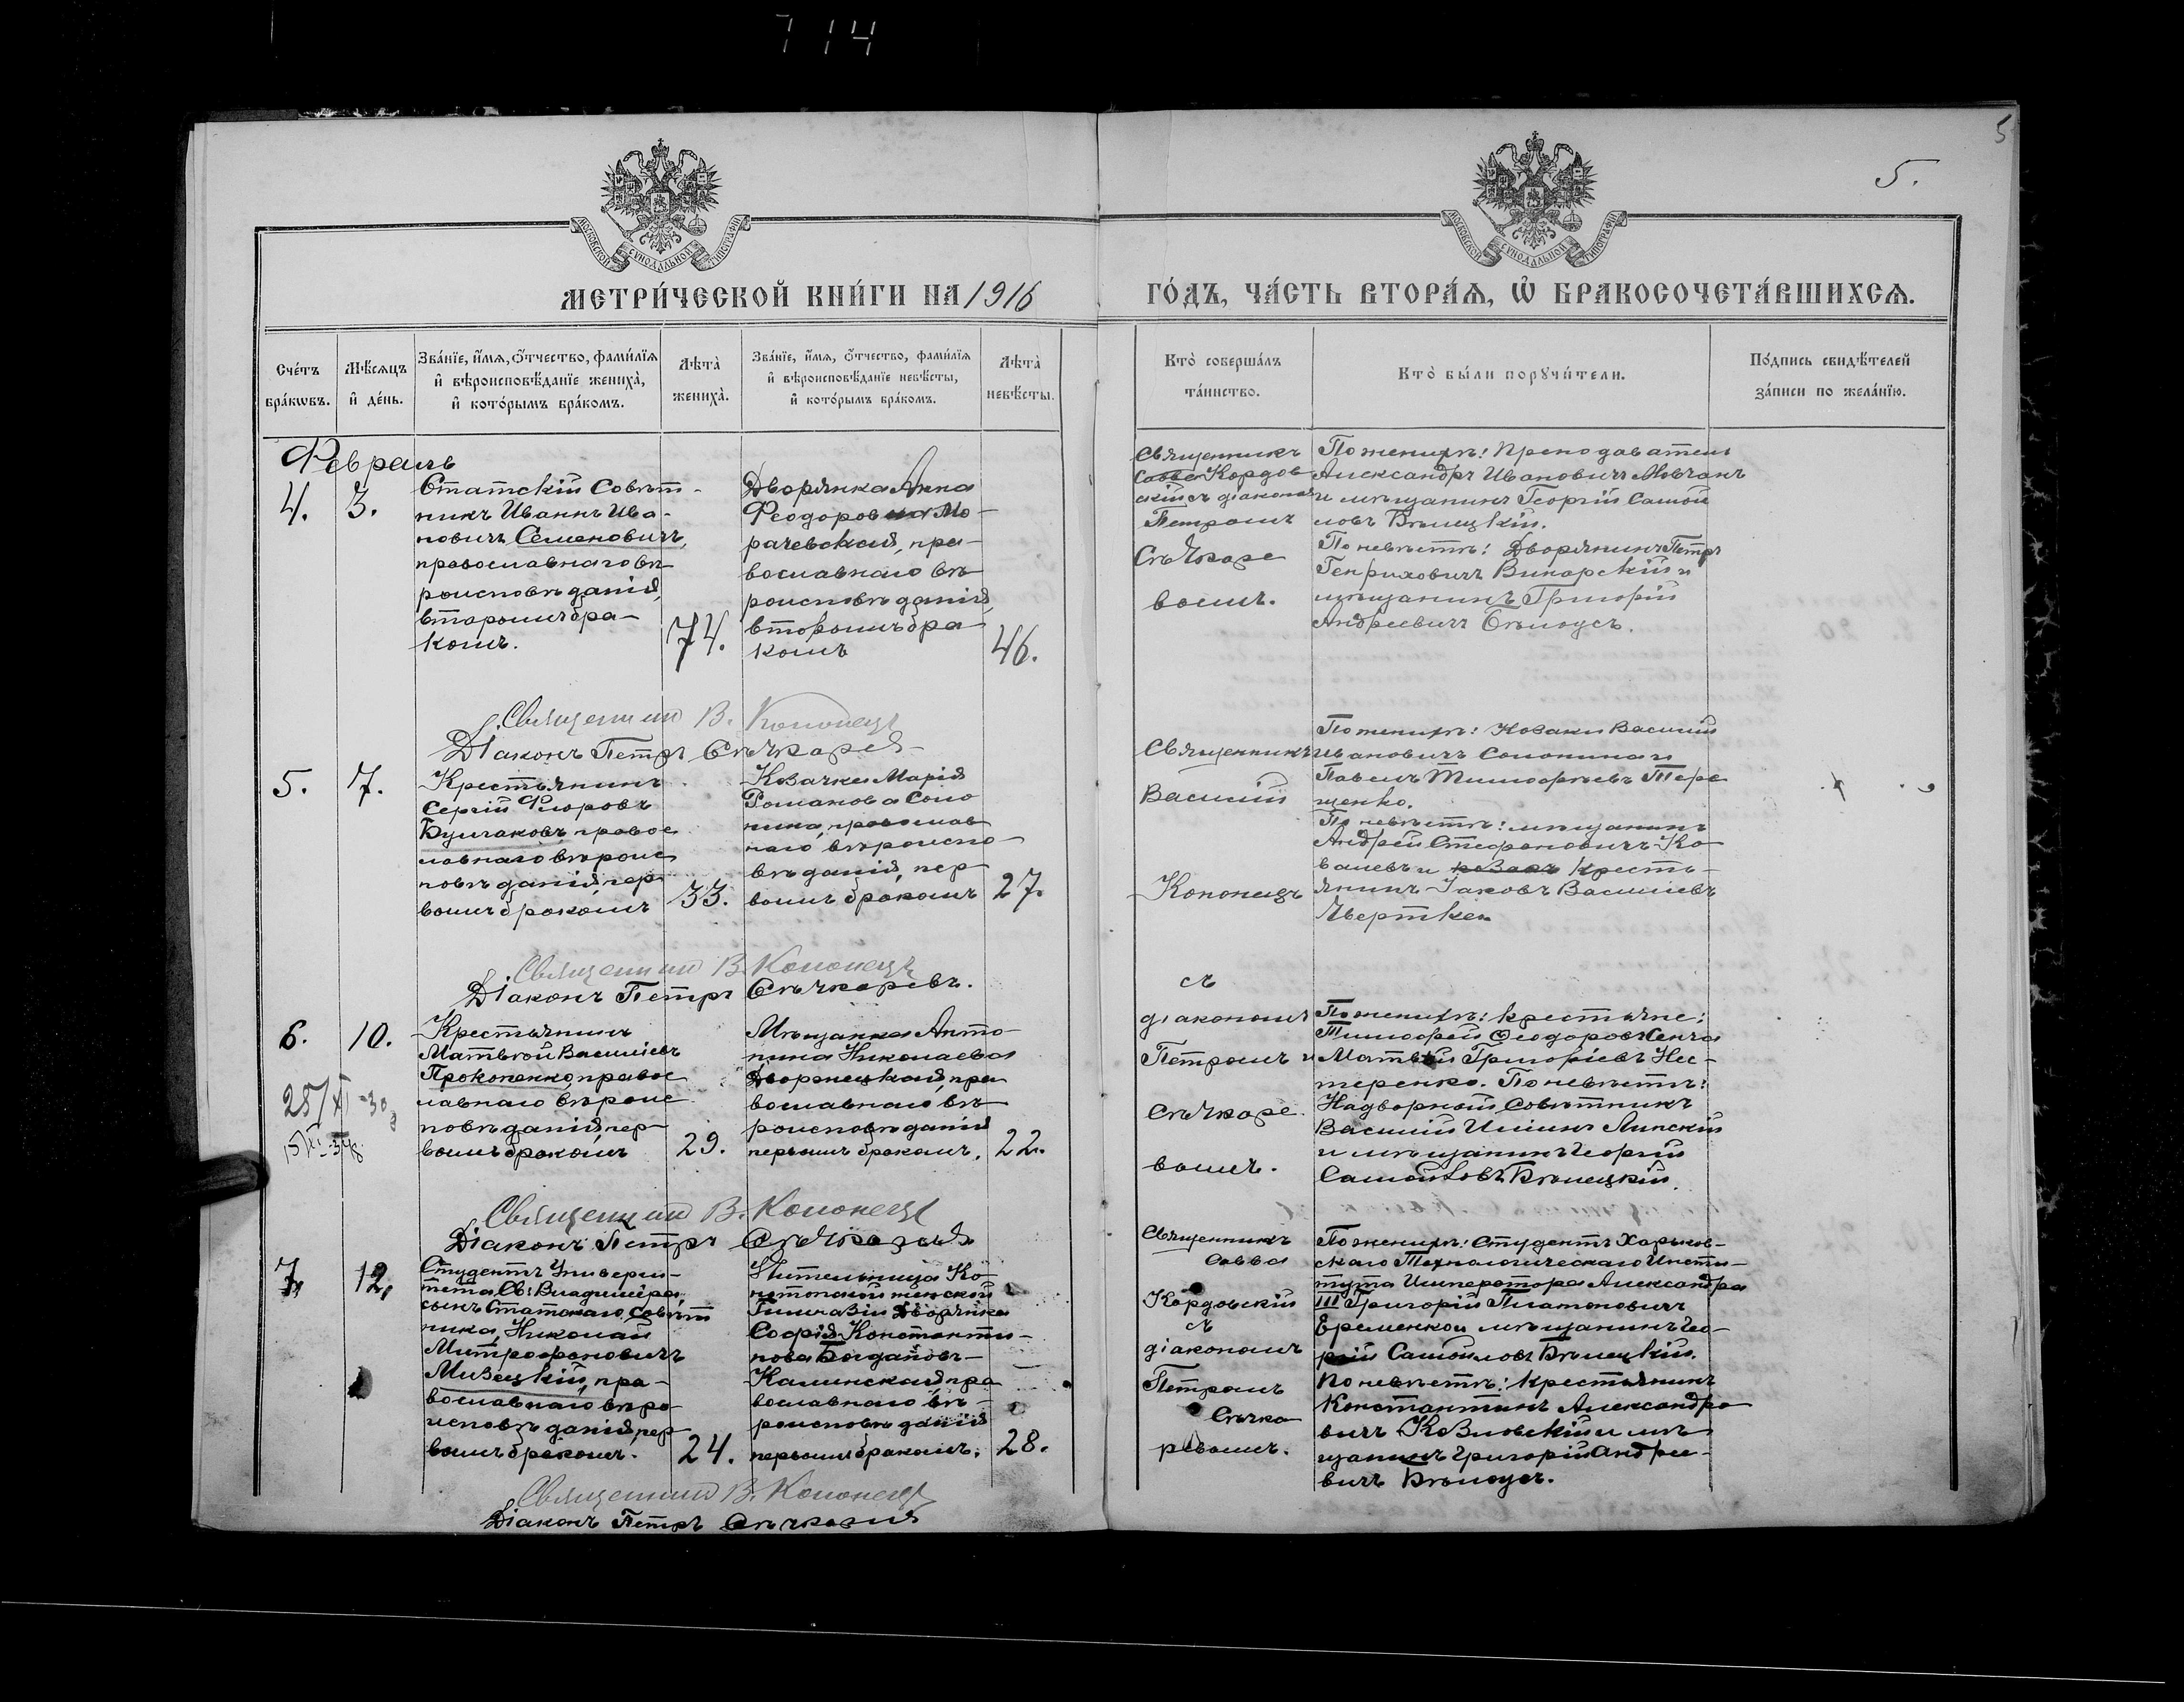 714
5
5.
МОСКОВСКОЙ СѴНОДАЛЬНОЙ ТИПОГРАФІИ
МОСКОВСКОЙ СѴНОДАЛЬНОЙ ТИПОГРАФІИ
МЕТРИ́ЧЕСКОЙ КНИ́ГИ НА 1916
ГО́ДЪ, ЧА́СТЬ ВТОРА́Я, Ѡ҆ БРАКОСОЧЕТА́ВШИХСЯ.
Сче́тъ бра́кѡвъ.
Мѣ́сяцъ и҆ де́нь.
Зва́нїе, и҆́мя, о҆́тчество, фами́лїя
и҆ вѣроисповѣ́данїе жениха̀,
и҆ кото́рымъ бра́комъ.
Лѣ́та̀ жениха̀.
Зва́нїе, и҆́мя, о҆́тчество, фами́лїя
и҆ вѣроисповѣ́данїе невѣ́сты,
и҆ кото́рымъ бра́комъ.
Лѣ́та̀ невѣ́сты.
Кто̀ соверша́лъ
та́инство.
Кто̀ бы́ли порꙋчи́тели.
По́дпись свидѣ́телей
за́писи по жела́нїю.
Февраль
4.
3.
Статскій Совѣт-
никъ Иванъ Ива-
новичъ Семеновичъ,
православнаго вѣ
роисповѣданія,
вторымъ бра-
комъ.
74.
Дворянка Анна
Феодоровна Мо-
рачевская, пра-
вославнаго вѣ
роисповѣданія,
вторымъ бра
комъ
46.
Священникъ
Савва Кордов
скій съ діакономъ
Петромъ
Сѣчкаре
вымъ.
По женихѣ: Преподаватель
Александръ Ивановичъ Мовчанъ
и мѣщанинъ Георгій Самой
ловъ Бѣлецкій.
По невѣстѣ: Дворянинъ Петръ
Генриховичъ Винарскій и
мѣщанинъ Григорій
Андреевичъ Бѣлоусъ.
Священникъ В. Кононецъ
Діаконъ Петръ Сѣчкарев
5.
7.
Крестьянинъ
Сергій Флоровъ
Булгаковъ, правос
лавнаго вѣроис
повѣданія, пер
вымъ бракомъ
33.
Козачка Марія
Романова Соло
нина, православ
наго вѣроиспо-
вѣданія, пер
вымъ бракомъ
27.
Священникъ
Василій
Кононецъ
По женихѣ: Козаки Василій
Ивановичъ Солонина и
Павелъ Тимофѣевъ Тере
щенко.
По невѣстѣ: мѣщанинъ
Андрей Стефановичъ Ко
валевъ и козакъ Кресть-
янинъ Іаковъ Василіевъ
Чвертка
Священникъ В. Кононецъ
Діаконъ Петръ Сѣчкаревъ.
6.
10.
28/XI-30
Крестьянинъ
Матвѣй Василіевъ
Прокопенко, правос
лавнаго вѣроис
повѣданія, пер
вымъ бракомъ
29.
Мѣщанка Анто-
нина Николаева
Дворецкая, пра
вославнаго вѣ
роисповѣданія
первымъ бракомъ.
22.
съ
діакономъ
Петромъ
Сѣчкаре
вымъ.
По женихѣ: крестьяне:
Тимофей Феодоровъ Сенча
и Матвѣй Григоріевъ Нес-
теренко. По невѣстѣ:
Надворный Совѣтникъ
Василій Ильинъ Липскій
и мѣщанинъ Георгій
Самойловъ Бѣлецкій.
Священникъ В. Кононецъ
Діаконъ Петръ
7.
12.
Студентъ Универси-
тета Св: Владиміра,
сынъ Статскаго Совѣт
ника, Николай
Митрофановичъ
Мизецкій, пра-
вославнаго вѣро
исповѣданія, пер
вымъ бракомъ.
24.
Учительница Ко-
нотопской женской
Гимназіи Дворянка
Софія Константи-
нова Богданов-
Калинская, пра
вославнаго вѣ-
роисповѣданія
первымъ бракомъ.
28.
Священникъ
Савва
Кордовскій
съ
діакономъ
Петромъ
Сѣчка
ревымъ.
По женихѣ: Студентъ Харьков-
скаго Технологическаго Инсти-
тута Императора Александра
III Григорій Платоновичъ
Еременко и мѣщанинъ Гео-
ргій Самойловъ Бѣлецкій.
По невѣстѣ: Крестьянинъ
Константинъ Александро
вичъ Козловскій и мѣ
щанинъ Григорій Андрее-
вичъ Бѣлоусъ.
Священникъ В. Кононецъ
Діаконъ Петръ